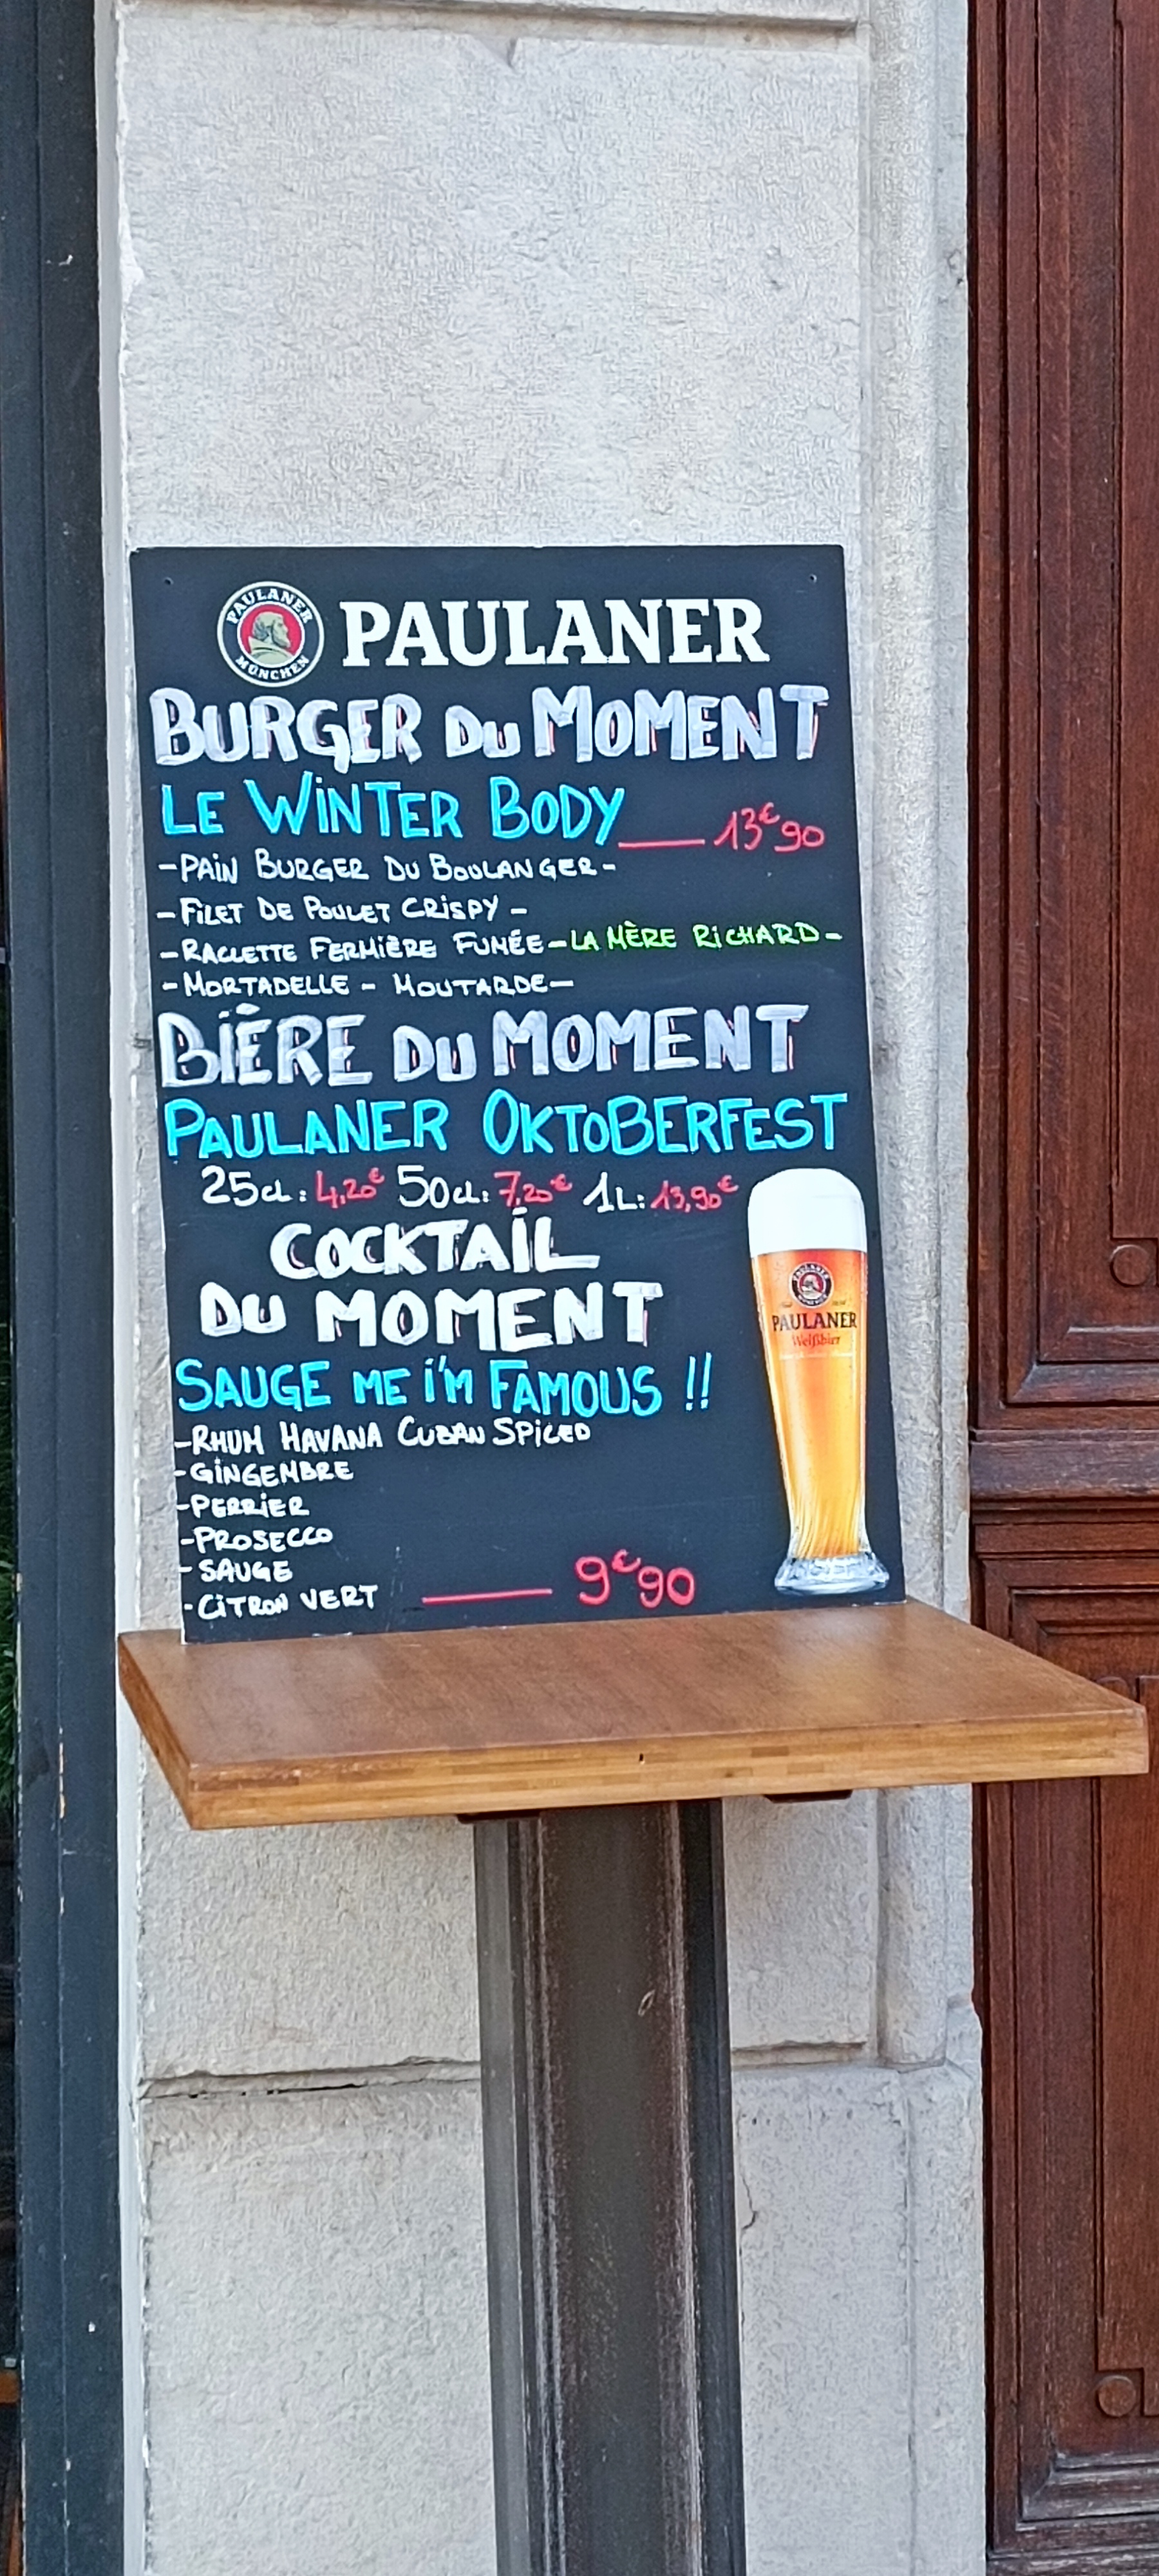 PAULANER
MÜNCHEN
PAULANER
BURGER DU MOMENT
LE WINTER BODY 13€90
-PAIN BURGER DU BOULANGER-
-FILET DE POULET CRISPY -
-RACLETTE FERMIÈRE FUMÉE-LA MÈRE RICHARD-
-MORTADELLE - MOUTARDE-
BIÈRE DU MOMENT
PAULANER OKTOBERFEST
25CL: 4,20€ 50CL: 7,20€ 1L: 13,90€
COCKTAIL
DU MOMENT
SAUGE ME I'M FAMOUS !!
-RHUM HAVANA CUBAN SPICED
-GINGEMBRE
-PERRIER
-PROSECCO
-SAUGE
-CITRON VERT 9€90
PAULANER
Weißbier